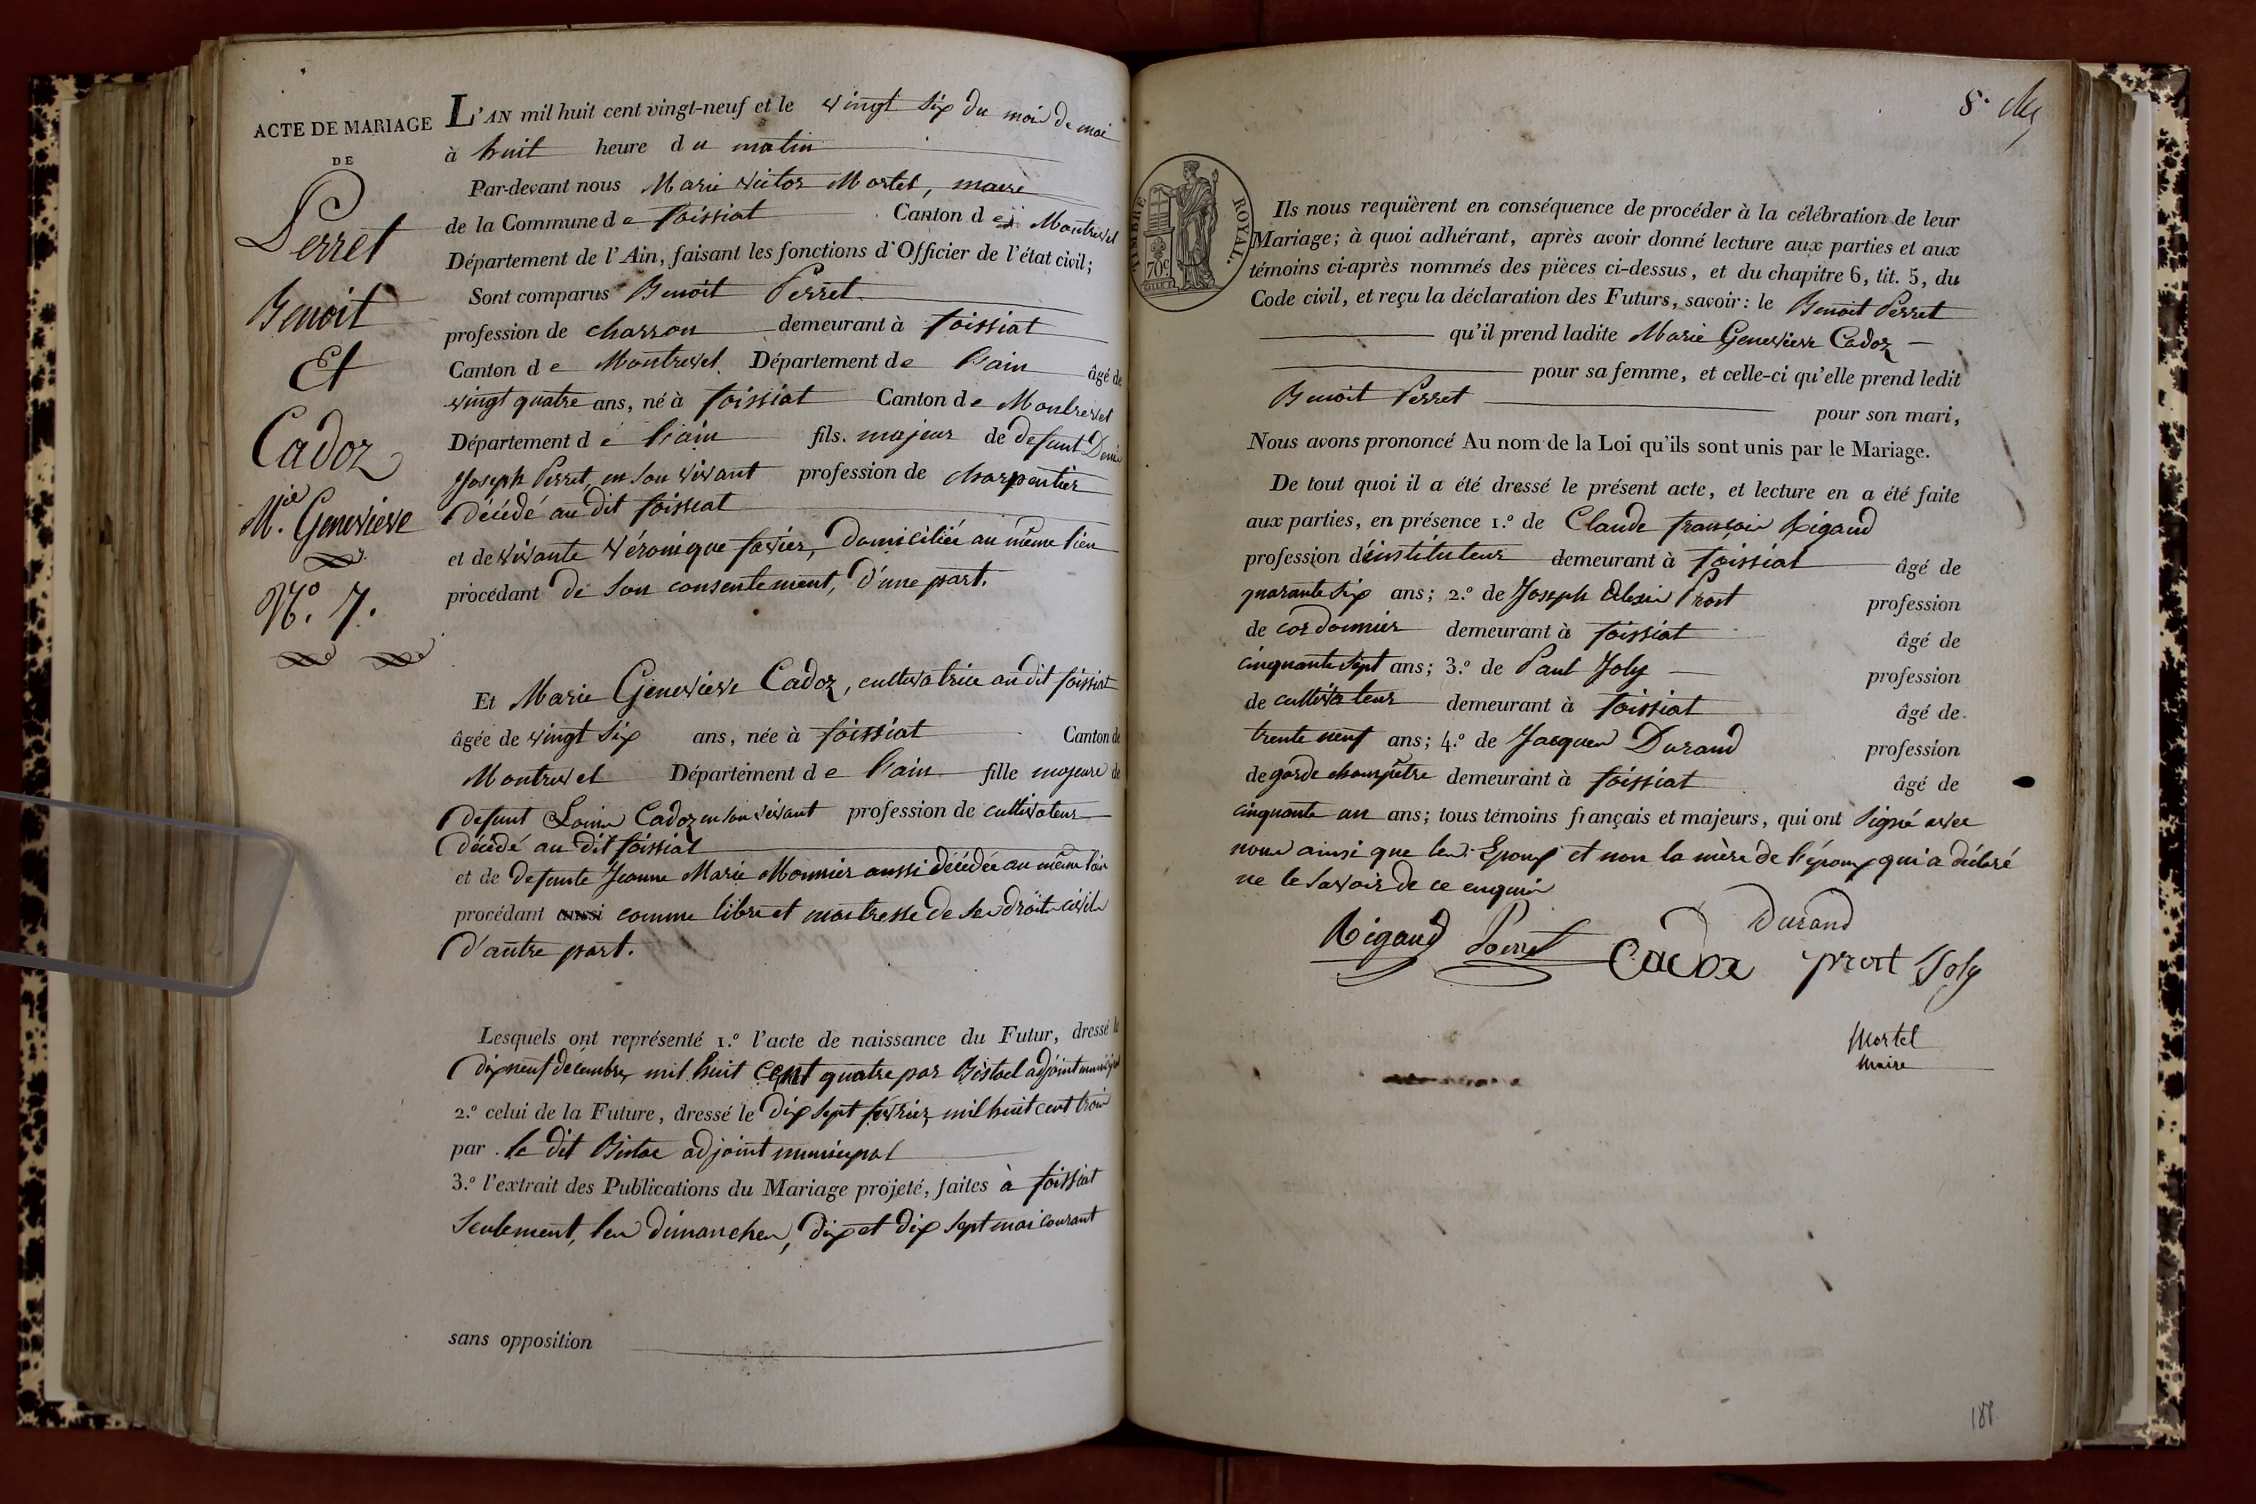 ACTE DE MARIAGE
DE
Perret
Benoit
Et
Cadoz
M.ie Genevieve
N.º 7.
L'AN mil huit cent vingt-neuf et le vingt six du mois de mai
à huit heure du matin
Par-devant nous Marie victor Mortel, maire
de la Commune de foissiat Canton de Montrevel
Département de l'Ain, faisant les fonctions d'Officier de l'état civil;
Sont comparus Benoit Perret
profession de charron demeurant à foissiat
Canton de Montrevel Département de l'ain âgé de
vingt quatre ans, né à foissiat Canton de Montrevel
Département de l'ain fils majeur de defunt Denis
Joseph Perret, en son vivant profession de charpentier
Décédé au dit foissiat
et de vivante véronique favier, Domiciliée au même lieu
procédant de son consentement, d'une part.
Et Marie Genevieve Cadoz, cultivatrice au dit foissiat
âgée de vingt six ans, née à foissiat Canton de
Montrevel Département de l'ain fille majeure de
defunt Louis Cadoz en son vivant profession de cultivateur
Décédé au dit foissiat
et de defunte Jeanne Marie Monnier aussi décédée au même lieu
procédant aussi comme libre et maitresse de ses droits civils
d'autre part.
Lesquels ont représenté 1.º l'acte de naissance du Futur, dressé le
dix neuf décembre mil huit cent quatre par Bistael adjoint municipal
2.º celui de la Future, dressé le dix sept fevrier mil huit cent trois
par le dit adjoint municipal
3.º l'extrait des Publications du Mariage projeté, faites à foissiat
Seulement, les dimanches, dix et dix sept mai courant
sans opposition
8e
TIMBRE ROYAL.
70c
Ils nous requièrent en conséquence de procéder à la célébration de leur
Mariage; à quoi adhérant, après avoir donné lecture aux parties et aux
témoins ci-après nommés des pièces ci-dessus, et du chapitre 6, tit. 5, du
Code civil, et reçu la déclaration des Futurs, savoir: le Benoit Perret
qu'il prend ladite Marie Genevieve Cadoz
pour sa femme, et celle-ci qu'elle prend ledit
Benoit Perret pour son mari,
Nous avons prononcé Au nom de la Loi qu'ils sont unis par le Mariage.
De tout quoi il a été dressé le présent acte, et lecture en a été faite
aux parties, en présence 1.º de Claude françois Rigaud
profession d'instituteur demeurant à foissiat âgé de
quarante six ans; 2.º de Joseph Alexis Prost profession
de cordonnier demeurant à foissiat âgé de
cinquante sept ans; 3.º de Paul Joly profession
de cultivateur demeurant à foissiat âgé de
trente neuf ans; 4.º de Jacques Durand profession
de garde champêtre demeurant à foissiat âgé de
cinquante un ans; tous témoins français et majeurs, qui ont signé avec
nous ainsi que les Epoux et non la mère de l'époux qui a déclaré
ne le savoir de ce enquis
Rigaud Perret Cadoz Durand prost Joly
Mortel
Maire
188